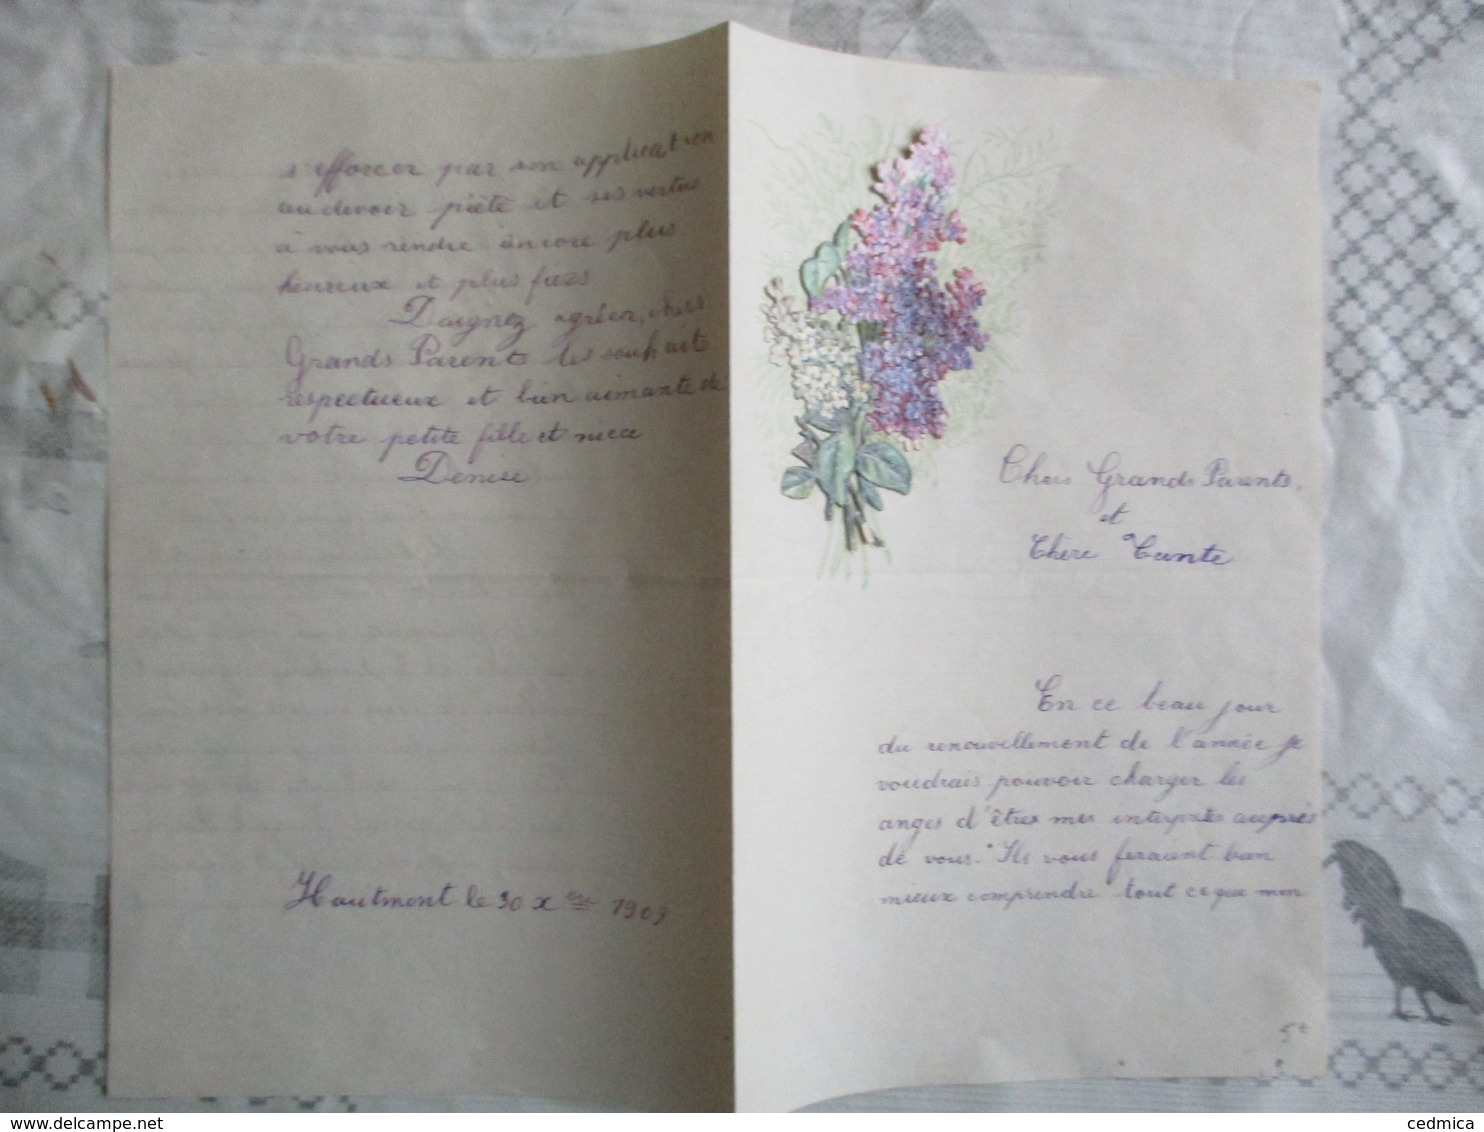 s'efforcer par son application
au devoir piété et ses vertus
à vous rendre èncore plus
heureux et plus fiers
Daignez agréer, chers
Grands Parents les souhaits
respectueux et bien aimante de
votre petite fille et niece
Denise
Hautmont le 30 Xbre 1903
Chers Grands Parents.
et
Chère Tante
En ce beau jour
du renouvellement de l'année je
voudrais pouvoir charger les
anges d'êtres mes interprètes auprès
de vous. Ils vous feraient bien
mieux comprendre tout ce que mon
5e
cedmica